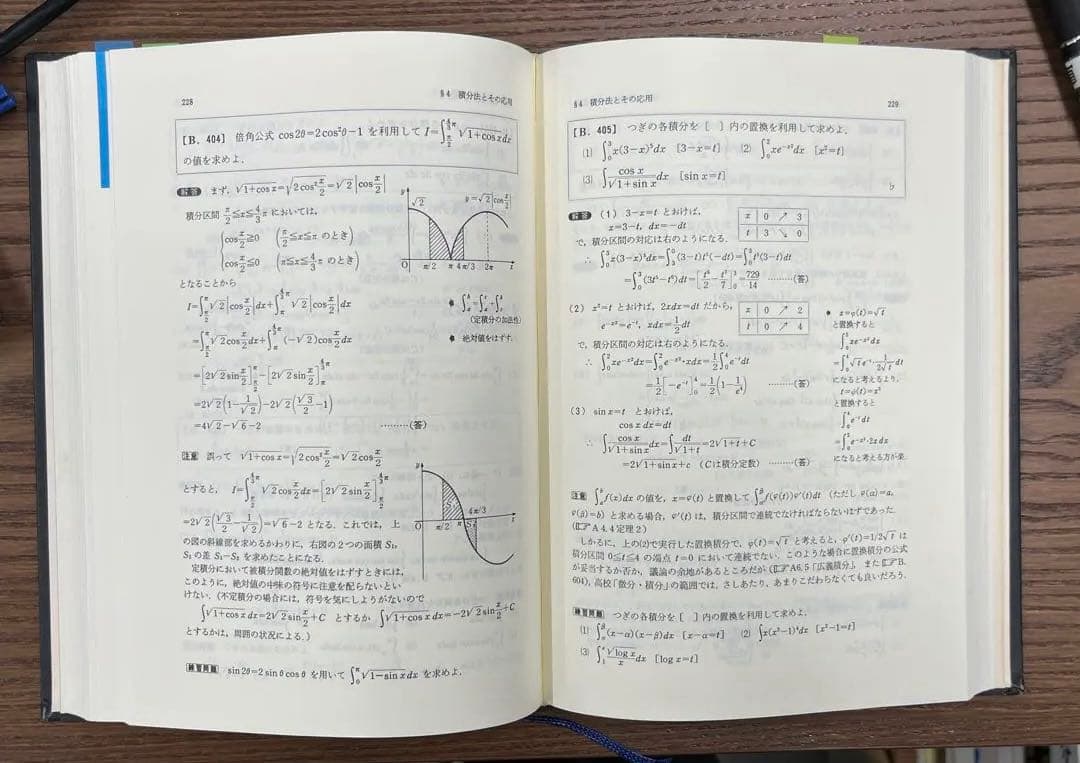 228
§4 積分法とその応用
[B. 404] 倍角公式 cos2θ=2cos²θ−1 を利用して I=∫_{π/2}^{4/3 π} √(1+cos x) dx
の値を求めよ.
解答 まず, √(1+cos x)=√(2cos² x/2)=√2|cos x/2|
積分区間 π/2≦x≦4/3 π においては,
cos x/2≧0 (π/2≦x≦π のとき)
cos x/2≦0 (π≦x≦4/3 π のとき)
となることから
I=∫_{π/2}^{π} √2|cos x/2|dx+∫_{π}^{4/3 π} √2|cos x/2|dx
=∫_{π/2}^{π} √2 cos x/2 dx+∫_{π}^{4/3 π} (−√2)cos x/2 dx
=[2√2 sin x/2]_{π/2}^{π}−[2√2 sin x/2]_{π}^{4/3 π}
=2√2(1−1/√2)−2√2(√3/2−1)
=4√2−√6−2 ………(答)
y
√2
y=√2|cos x/2|
O π/2 π 4π/3 2π
(定積分の加法性)
絶対値をはずす.
注意 誤って √(1+cos x)=√(2cos² x/2)=√2 cos x/2
とすると, I=∫_{π/2}^{4/3 π} √2 cos x/2 dx=[2√2 sin x/2]_{π/2}^{4/3 π}
=2√2(√3/2−1/√2)=√6−2 となる. これでは, 上
の図の斜線部を求めるかわりに, 右図の2つの面積 S₁,
S₂ の差 S₁−S₂ を求めたことになる.
定積分において被積分関数の絶対値をはずすときには,
このように, 絶対値の中味の符号に注意を配らないとい
けない. (不定積分の場合には, 符号を気にしようがないので
∫√(1+cos x) dx=2√2 sin x/2+C とするか ∫√(1+cos x) dx=−2√2 sin x/2+C
とするかは, 周囲の状況による.)
y
4π/3
O π/2 π
練習問題 sin2θ=2sinθcosθ を用いて ∫_{0}^{π} √(1−sin x) dx を求めよ.
§4 積分法とその応用
229
[B. 405] つぎの各積分を [ ] 内の置換を利用して求めよ.
(1) ∫_{0}^{3} x(3−x)⁵dx [3−x=t] (2) ∫_{0}^{2} xe^{−x²}dx [x²=t]
(3) ∫ cos x/√(1+sin x) dx [sin x=t]
解答 (1) 3−x=t とおけば,
x=3−t, dx=−dt
で, 積分区間の対応は右のようになる.
x 0 ↗ 3
t 3 ↘ 0
∴ ∫_{0}^{3} x(3−x)⁵dx=∫_{3}^{0} (3−t)t⁵(−dt)=∫_{0}^{3} t⁵(3−t)dt
=∫_{0}^{3} (3t⁵−t⁶)dt=[t⁶/2−t⁷/7]_{0}^{3}=729/14 ………(答)
(2) x²=t とおけば, 2xdx=dt だから,
e^{−x²}=e^{−t}, xdx=1/2 dt
で, 積分区間の対応は右のようになる.
x 0 ↗ 2
t 0 ↗ 4
∴ ∫_{0}^{2} xe^{−x²}dx=∫_{0}^{2} e^{−x²}·xdx=1/2∫_{0}^{4} e^{−t}dt
=1/2[−e^{−t}]_{0}^{4}=1/2(1−1/e⁴) ………(答)
x=φ(t)=√t
と置換すると
∫_{0}^{2} xe^{−x²}dx
=∫_{0}^{4} √t e^{−t}·1/(2√t) dt
になると考えるより,
t=φ(x)=x²
と置換すると
∫_{0}^{4} e^{−t}dt
=∫_{0}^{2} e^{−x²}·2xdx
になると考える方が楽.
(3) sin x=t とおけば,
cos x dx=dt
∴ ∫ cos x/√(1+sin x) dx=∫ dt/√(1+t)=2√(1+t)+C
=2√(1+sin x)+c (Cは積分定数) ………(答)
注意 ∫_{a}^{b} f(x)dx の値を, x=φ(t) と置換して ∫_{α}^{β} f(φ(t))φ′(t)dt (ただし φ(α)=a,
φ(β)=b) と求める場合, φ′(t) は, 積分区間で連続でなければならないはずであった.
(☞A 4.4定理2)
しかるに, 上の(2)で実行した置換積分で, φ(t)=√t と考えると, φ′(t)=1/2√t は
積分区間 0≦t≦4 の端点 t=0 において連続でない. このような場合に置換積分の公式
が妥当するか否か, 議論の余地があるところだが (☞A6.5「広義積分」, また☞B.
604), 高校「微分・積分」の範囲では, さしあたり, あまりこだわらなくても良いだろう.
練習問題 つぎの各積分を [ ] 内の置換を利用して求めよ.
(1) ∫_{α}^{β} (x−α)(x−β)dx [x−α=t] (2) ∫x(x²−1)⁴dx [x²−1=t]
(3) ∫ √(log x)/x dx [log x=t]